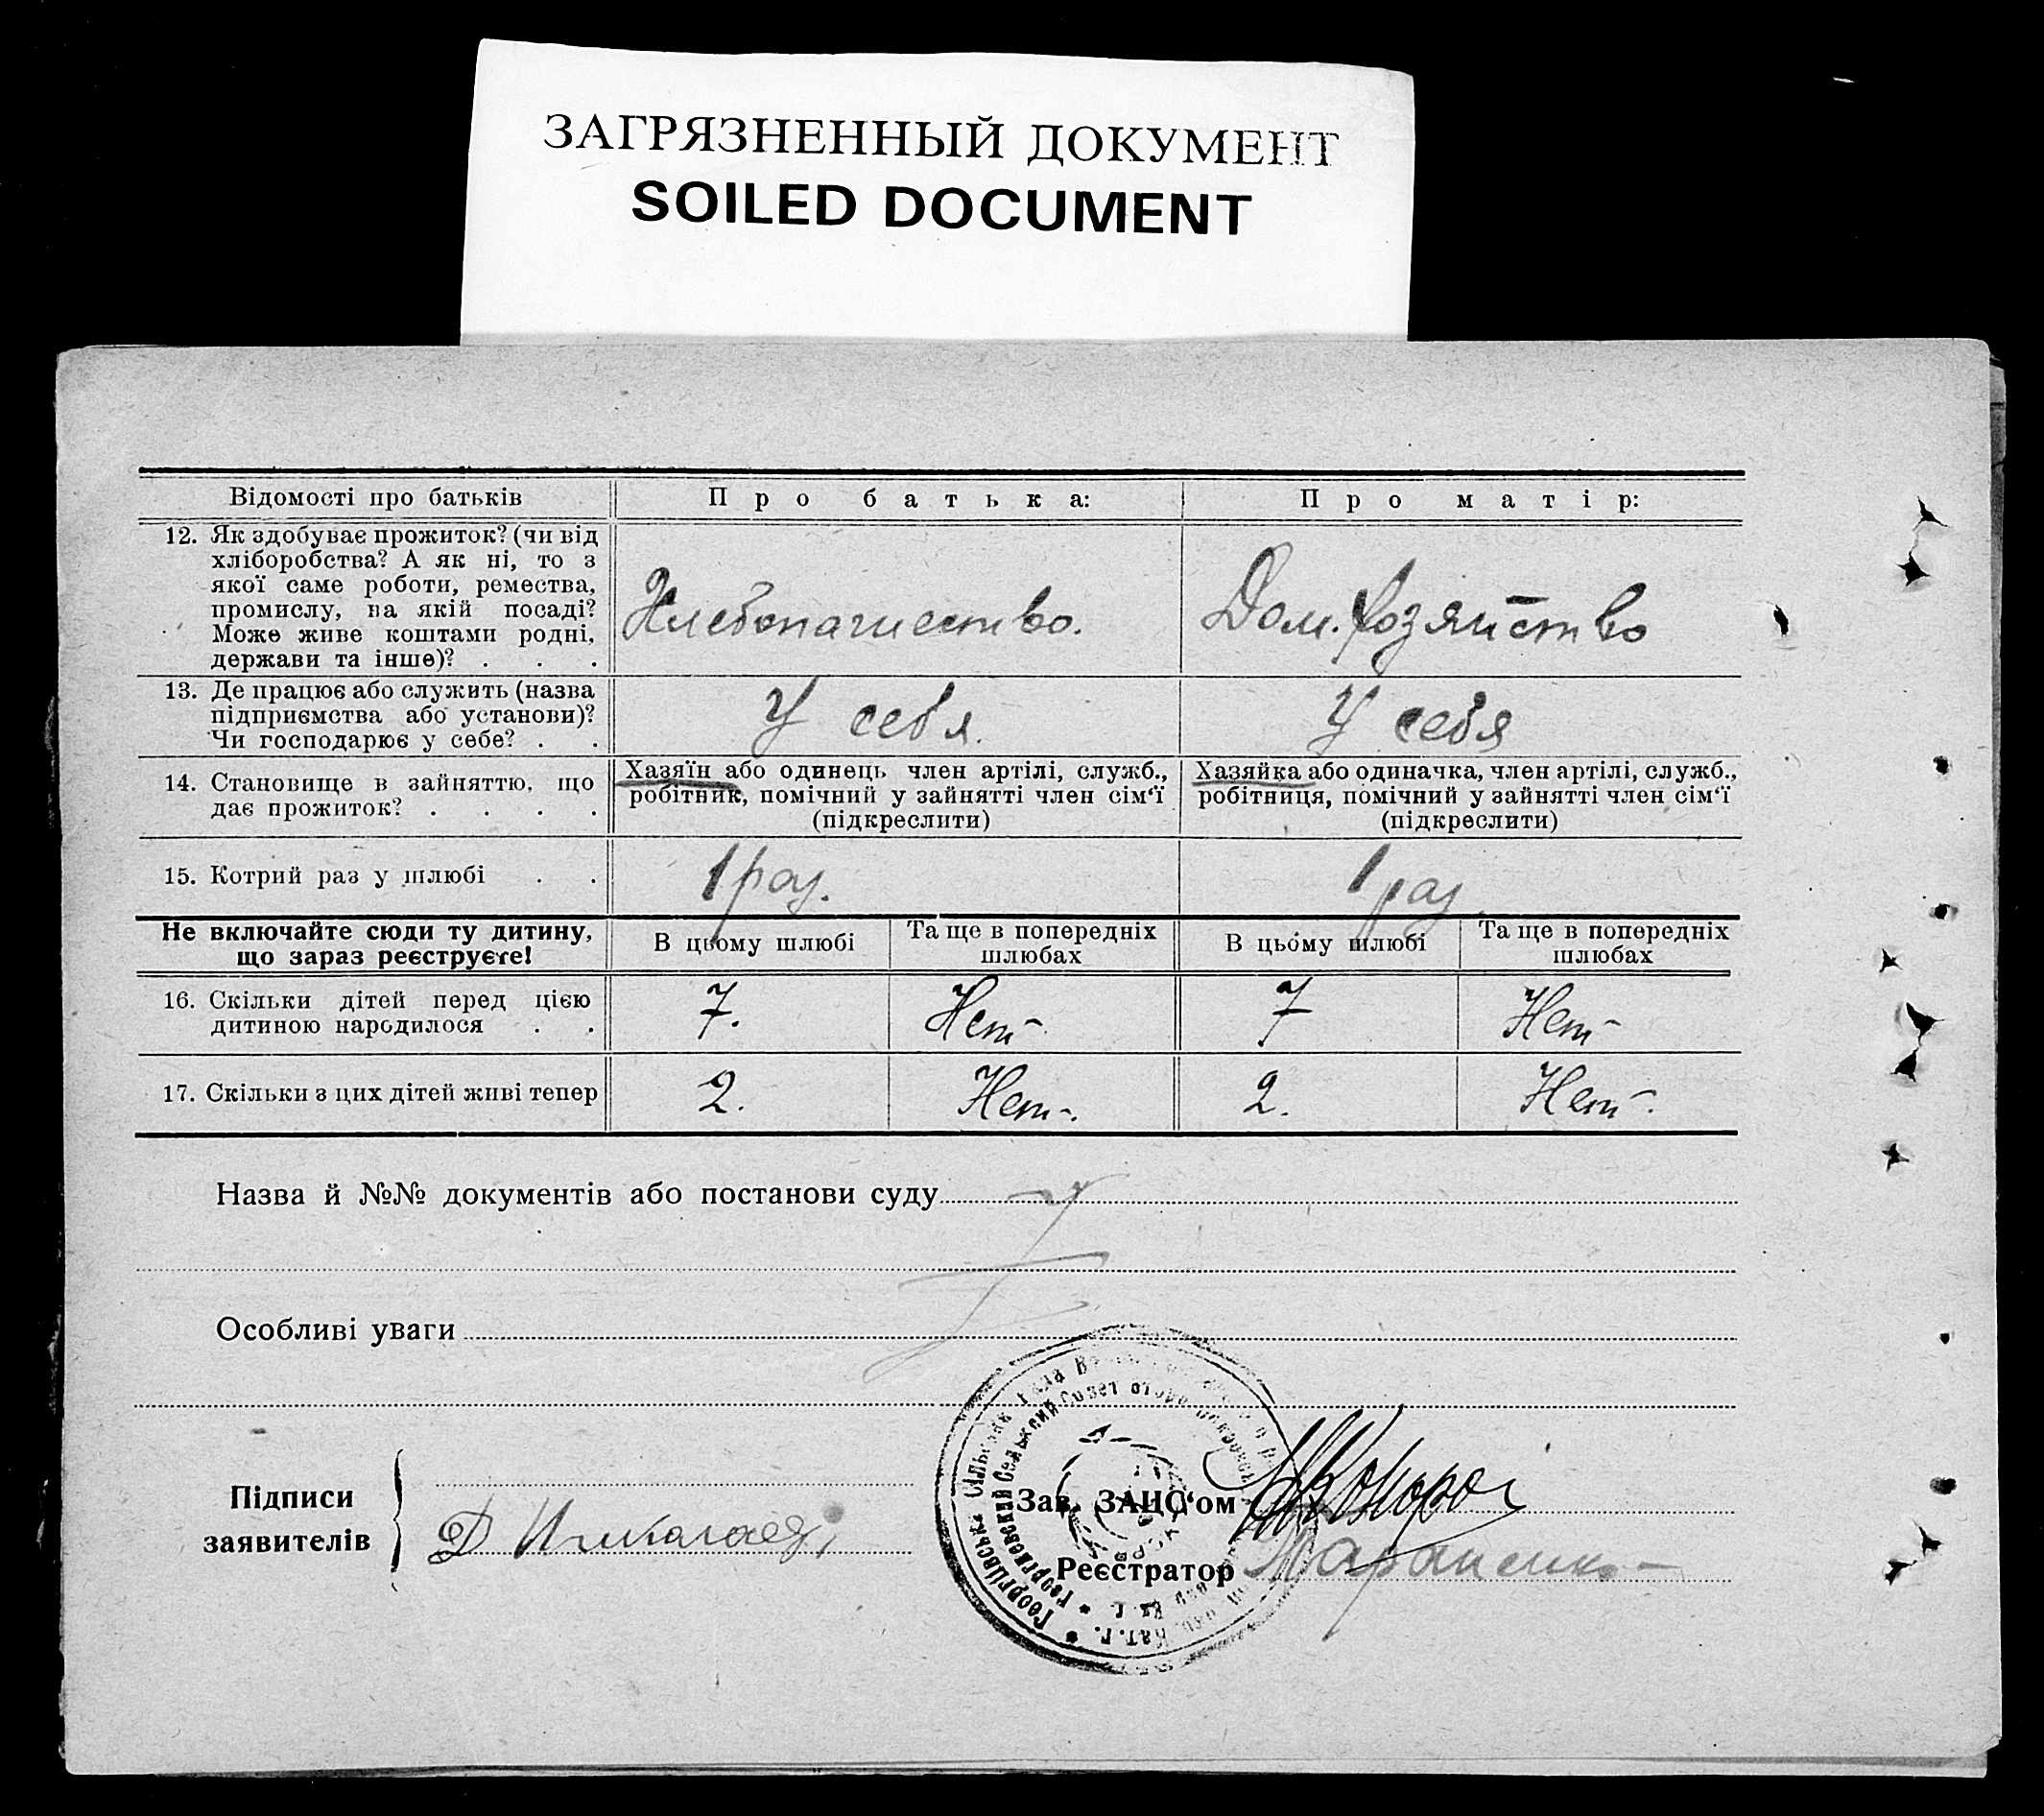 ЗАГРЯЗНЕННЫЙ ДОКУМЕНТ
SOILED DOCUMENT
Відомості про батьків
Про батька:
Про матір:
12. Як здобуває прожиток? (чи від
хліборобства? А як ні, то з
якої саме роботи, ремества,
промислу, на якій посаді?
Може живе коштами родні,
держави та інше)? . . .
Хлебопашество.
Дом. Хозяйство
13. Де працює або служить (назва
підприємства або установи)?
Чи господарює у себе? . .
У себя.
У себя
14. Становище в зайняттю, що
дає прожиток? . . . .
Хазяїн або одинець член артілі, служб.,
робітник, помічний у зайнятті член сім‘ї
(підкреслити)
Хазяйка або одиначка, член артілі, служб.,
робітниця, помічний у зайнятті член сім‘ї
(підкреслити)
15. Котрий раз у шлюбі . .
1 раз.
1 раз.
Не включайте сюди ту дитину,
що зараз реєструєте!
В цьому шлюбі
Та ще в попередніх
шлюбах
В цьому шлюбі
Та ще в попередніх
шлюбах
16. Скільки дітей перед цією
дитиною народилося . .
7.
Нет
7
Нет
17. Скільки з цих дітей живі тепер
2.
Нет.
2.
Нет.
Назва й №№ документів або постанови суду
Особливі уваги
Підписи
заявителів
Д
Зав. ЗАЦС‘ом
Реєстратор
Георгіївська Сільська Рада
Георгиевский Сельский Совет